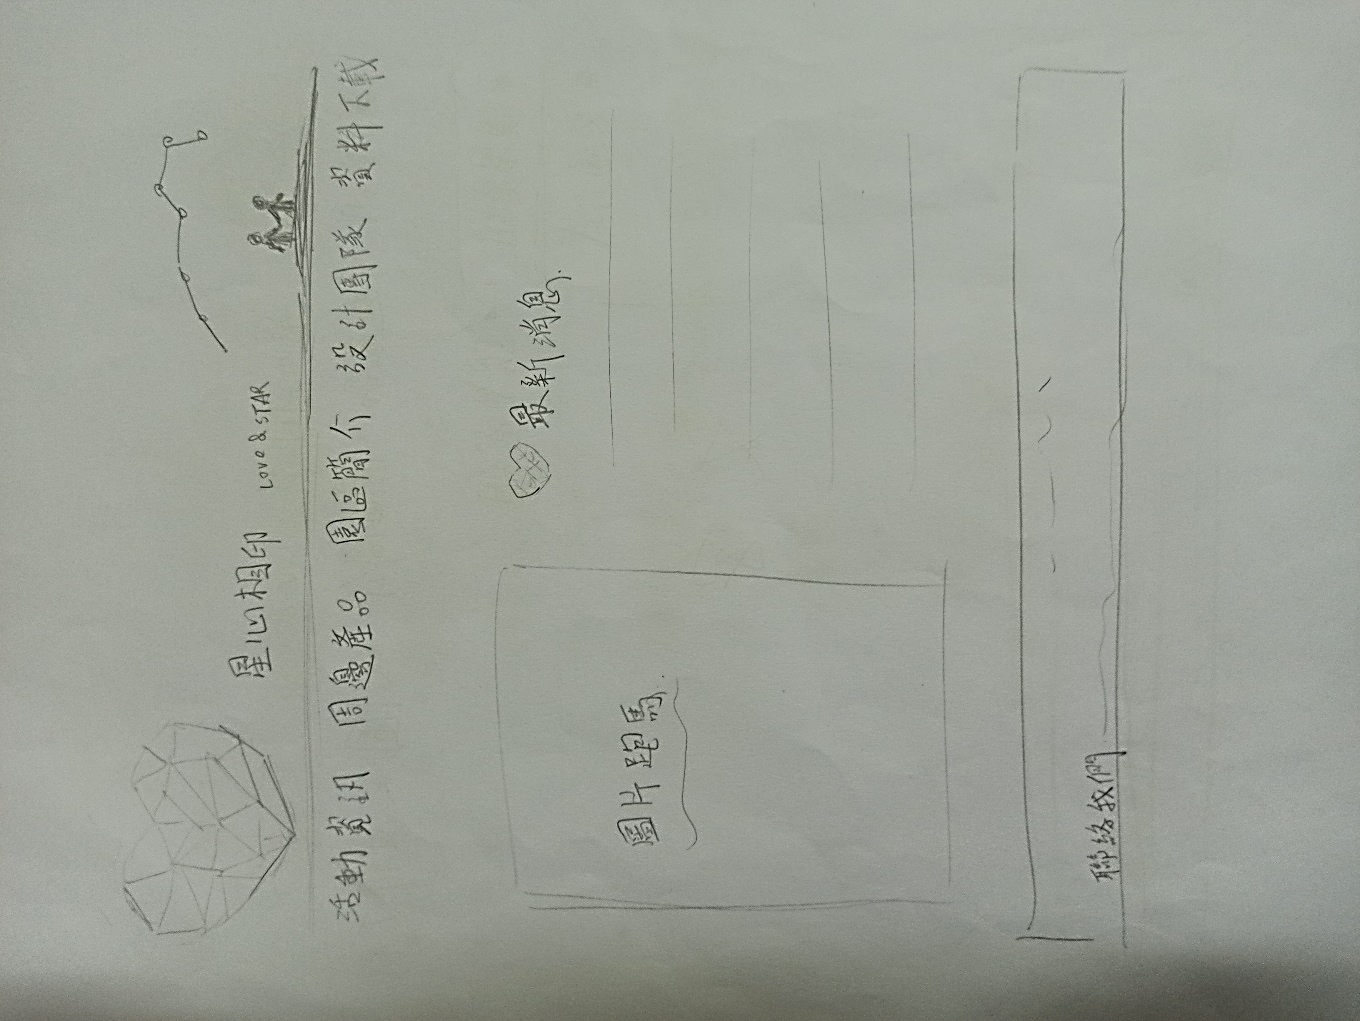 星心相印 LOVE & STAR
活動資訊 周邊產品 園區簡介 設計團隊 資料下載
最新消息
圖片跑馬
聯絡我們